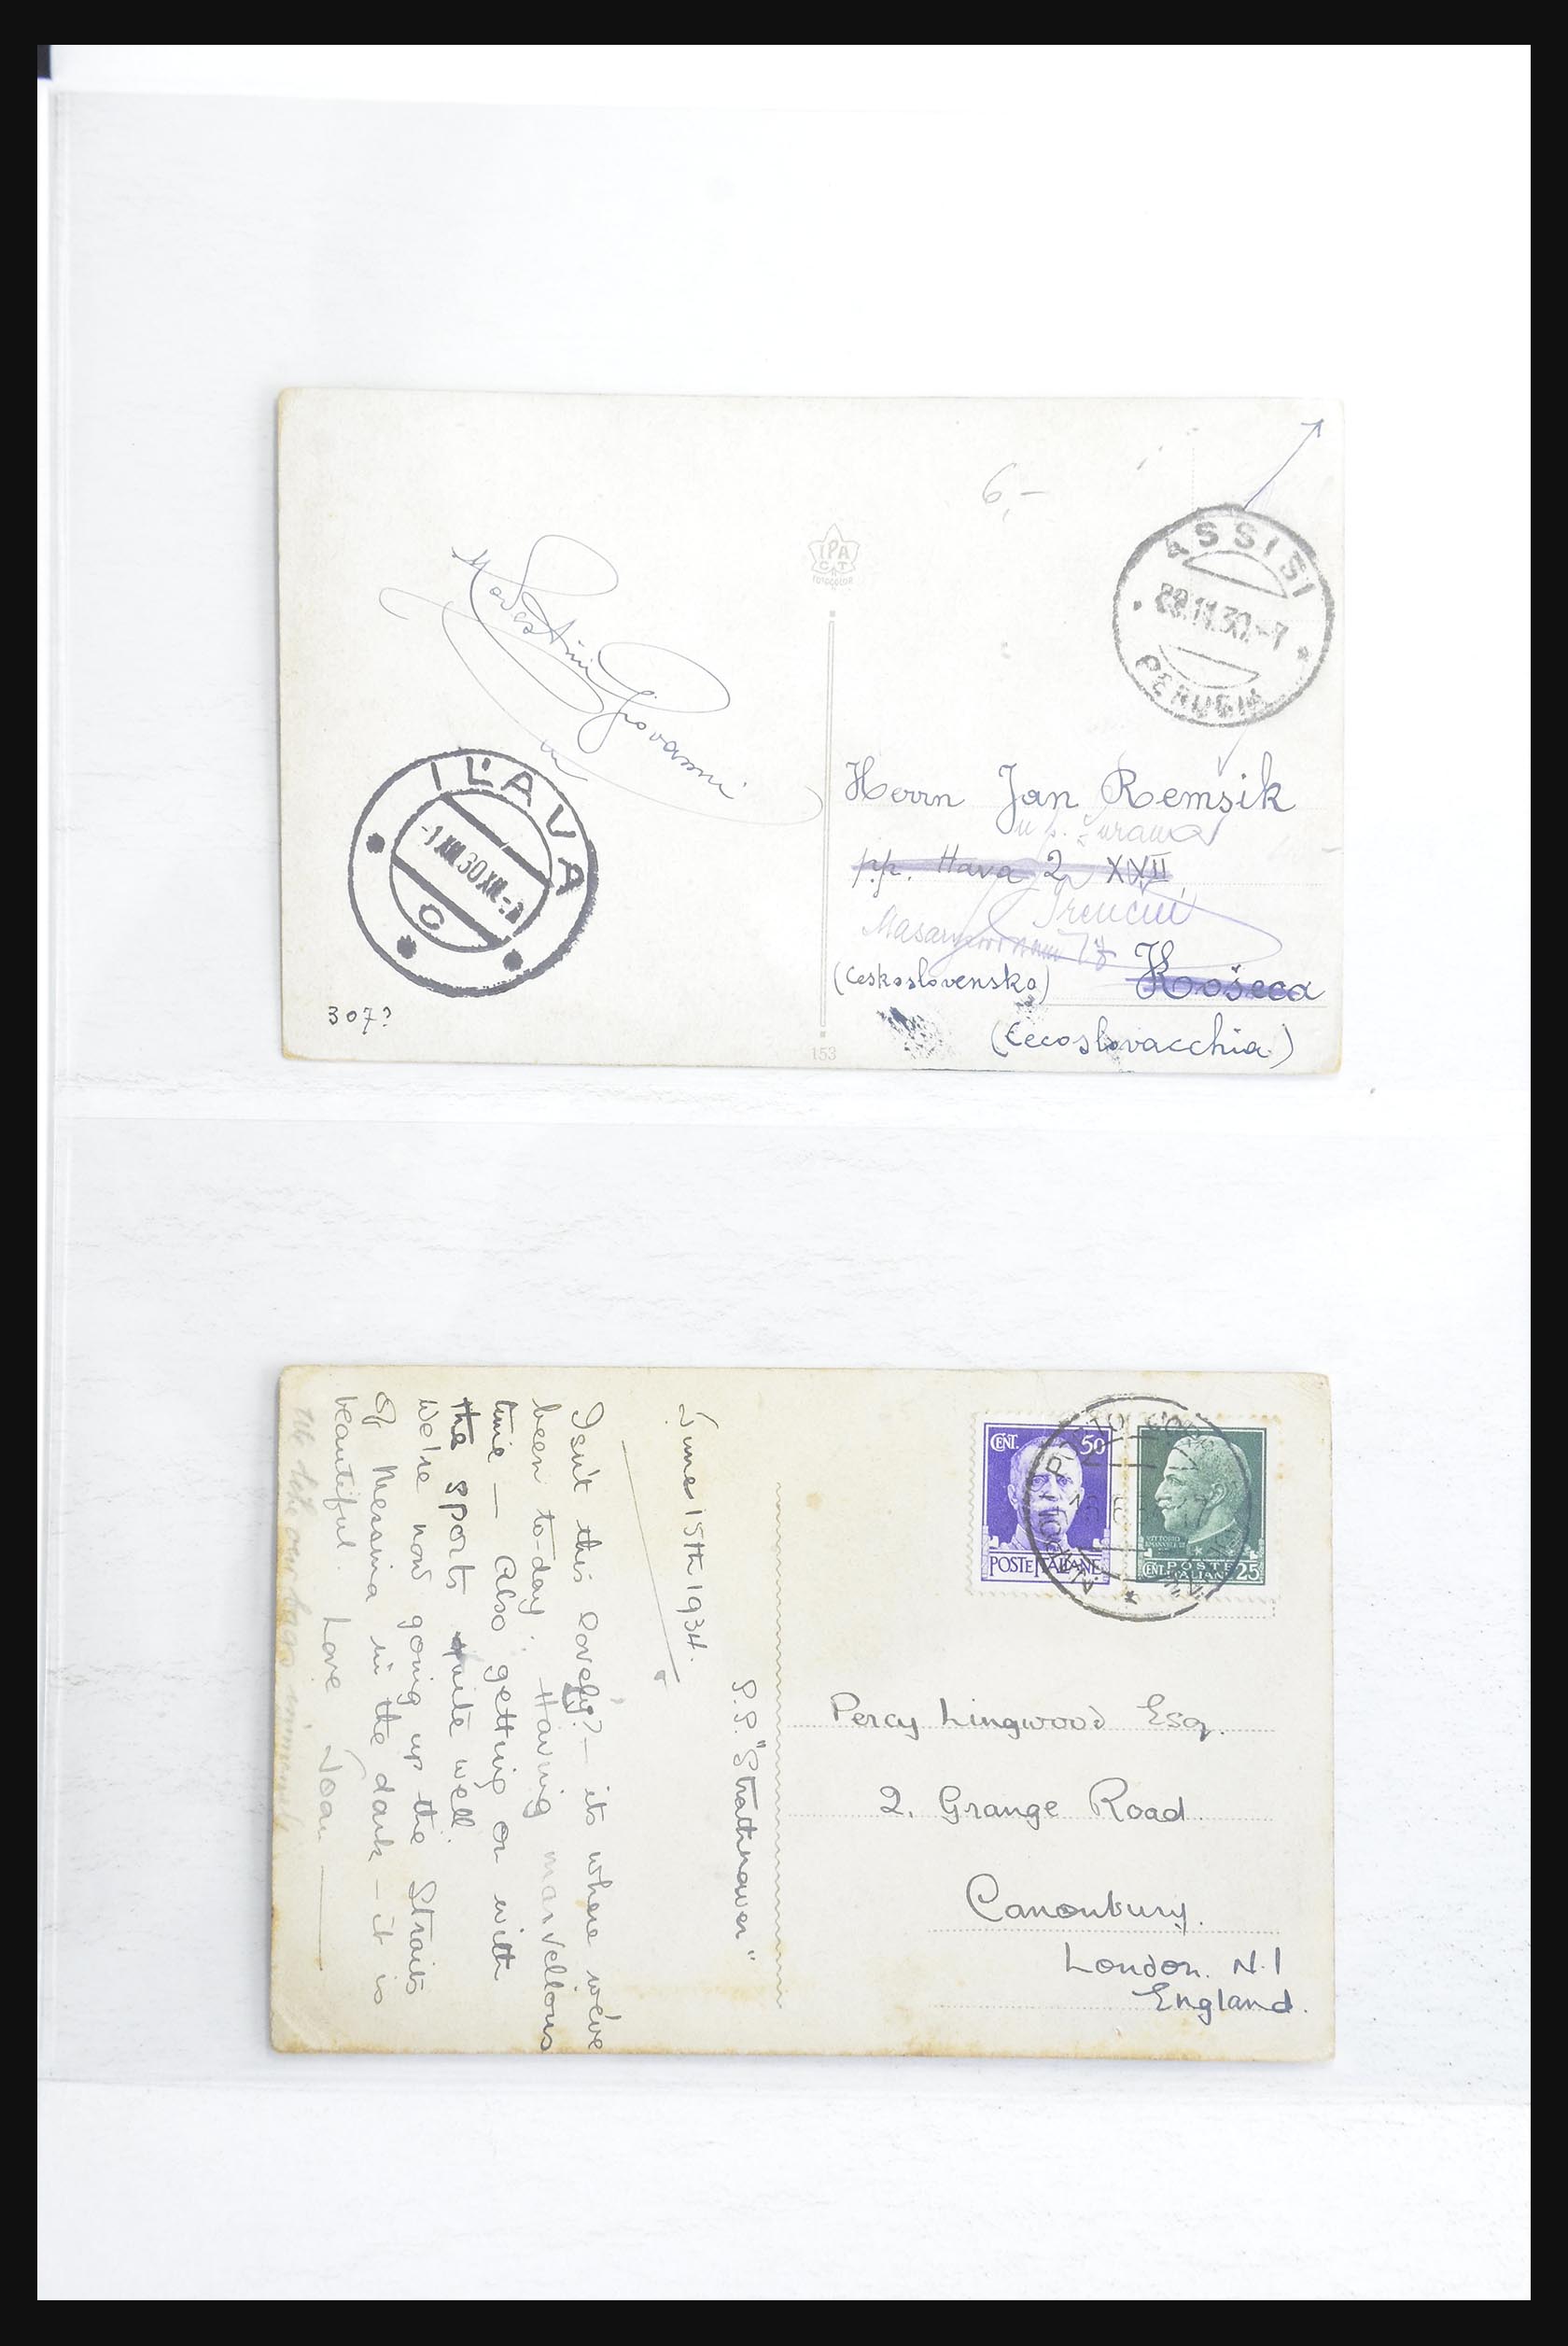 6,-
IPA
CT
FOTOCOLOR
ASSISI
28.11.30.-7
PERUGIA
Modestini Giovanni
IĽAVA
-1 XII 30 XII
C
307?
153
Herrn Jan Remsik
p.p. Ilava 2 XXII
Trencin
77
(Ceskoslovenska) Košeca
(Cecoslovacchia)
CENT. 50
POSTE ITALIANE
VITTORIO EMANUELE III
CENT. POSTE ITALIANE 25
S.S. "Strathnaver"
June 15th 1934.
Isn't this lovely? - its where we've
been to-day. Having marvellous
time - Also getting on with
the sports quite well.
We're now going up the Straits
of Messina in the dark - it is
beautiful. Love Joan
Percy Lingwood Esq.
2, Grange Road
Canonbury.
London. N.1
England.